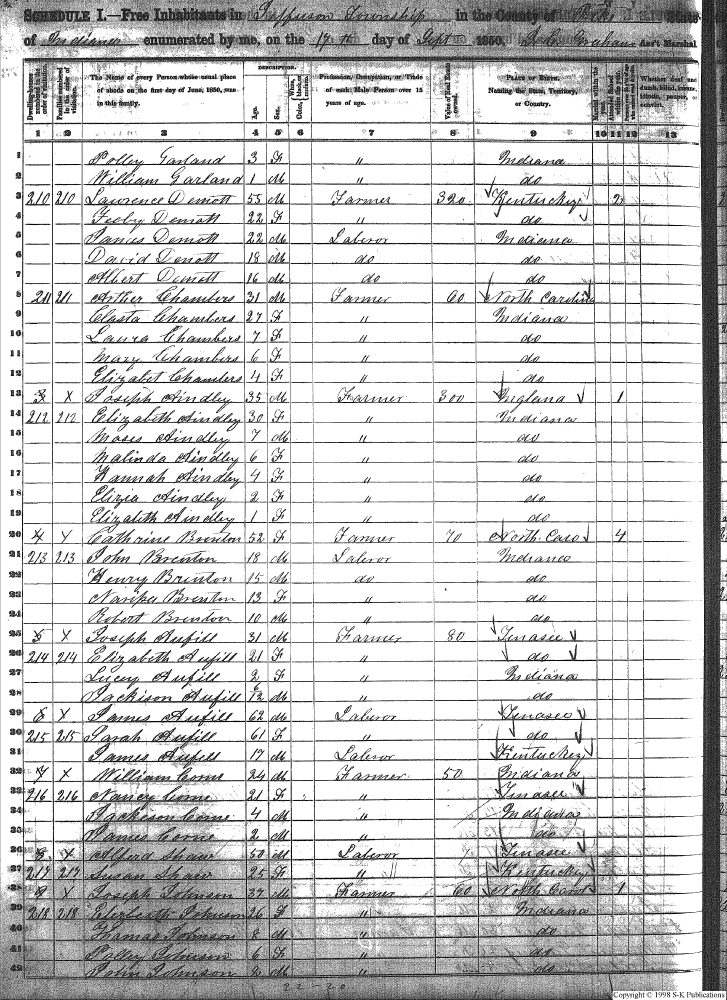 SCHEDULE I.—Free Inhabitants in Jefferson Township in the County of Pike State
of Indiana enumerated by me, on the 17th day of Sept 1850. Ass't Marshal
Dwelling-houses numbered in the order of visitation.
Families numbered in the order of visitation.
The Name of every Person whose usual place of abode on the first day of June, 1850, was in this family.
DESCRIPTION.
Age.
Sex.
Color, {White, black, or mulatto.
Profession, Occupation, or Trade of each Male Person over 15 years of age.
Value of Real Estate owned.
PLACE OF BIRTH. Naming the State, Territory, or Country.
Married within the year.
Attended School within the year.
Whether deaf and dumb, blind, insane, idiotic, pauper, or convict.
1 2 3 4 5 6 7 8 9 10 11 12 13
1 Polley Garland 3 F " Indiana
2 William Garland 1 M " do
3 210 210 Lawrence Demott 55 M Farmer 320 Kentuckey 2
4 Feeby Demott 22 F " do
5 James Demott 22 M Laberor Indiana
6 David Demott 18 M do do
7 Albert Demott 16 M do do
8 211 211 Arther Chambers 31 M Farmer 60 North Carolina
9 Clasta Chambers 27 F " Indiana
10 Laura Chambers 7 F " do
11 Mary Chambers 6 F " do
12 Elizabet Chambers 4 F " do
13 3 X Joseph Aindley 35 M Farmer 300 England 1
14 212 212 Elizabeth Aindley 30 F " Indiana
15 Moses Aindley 7 M " do
16 Malinda Aindley 6 F " do
17 Hannah Aindley 4 F " do
18 Eliza Aindley 2 F " do
19 Elizabeth Aindley 1 F " do
20 4 X Cathrine Brenton 52 F Farmer 70 North Caro 4
21 213 213 John Brenton 18 M Laberor Indiana
22 Henry Brinton 15 M do do
23 Brenton 13 F " do
24 Robert Brenton 10 M " do
25 5 X Joseph Aufill 31 M Farmer 80 Tenasee
26 214 214 Elizabeth Aufill 21 F " do
27 Lucey Aufill 2 F " Indiana
28 Jackison Aufill M " do
29 6 X James Aufill 62 M Laberor Tenasee
30 215 215 Sarah Aufill 61 F " do
31 James Aufill 17 M Laberor Kentuckey
32 7 X William Corne 24 M Farmer 50 Indiana
33 216 216 Nancy Corne 21 F " Tenasee
34 Jackeson Corne 4 M " Indiana
35 James Corne 2 M " do
26 8 X Alferd Shaw 50 M Laberor Tenasee
27 217 217 Susan Shaw 25 F " Kentuckey
28 9 X Joseph Johnson 37 M Farmer 60 North Caro 1
29 218 218 Elizabeth Johnson 26 F " Indiana
40 Thomas Johnson 8 M " do
41 Polley Johnson 6 F " do
42 John Johnson 2 M " do
22-20
Copyright © 1998 S-K Publications